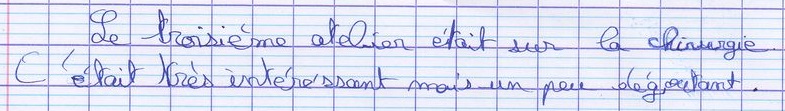 Le troisième atelier était sur la chirurgie.
C'était très intéressant mais un peu dégoutant.